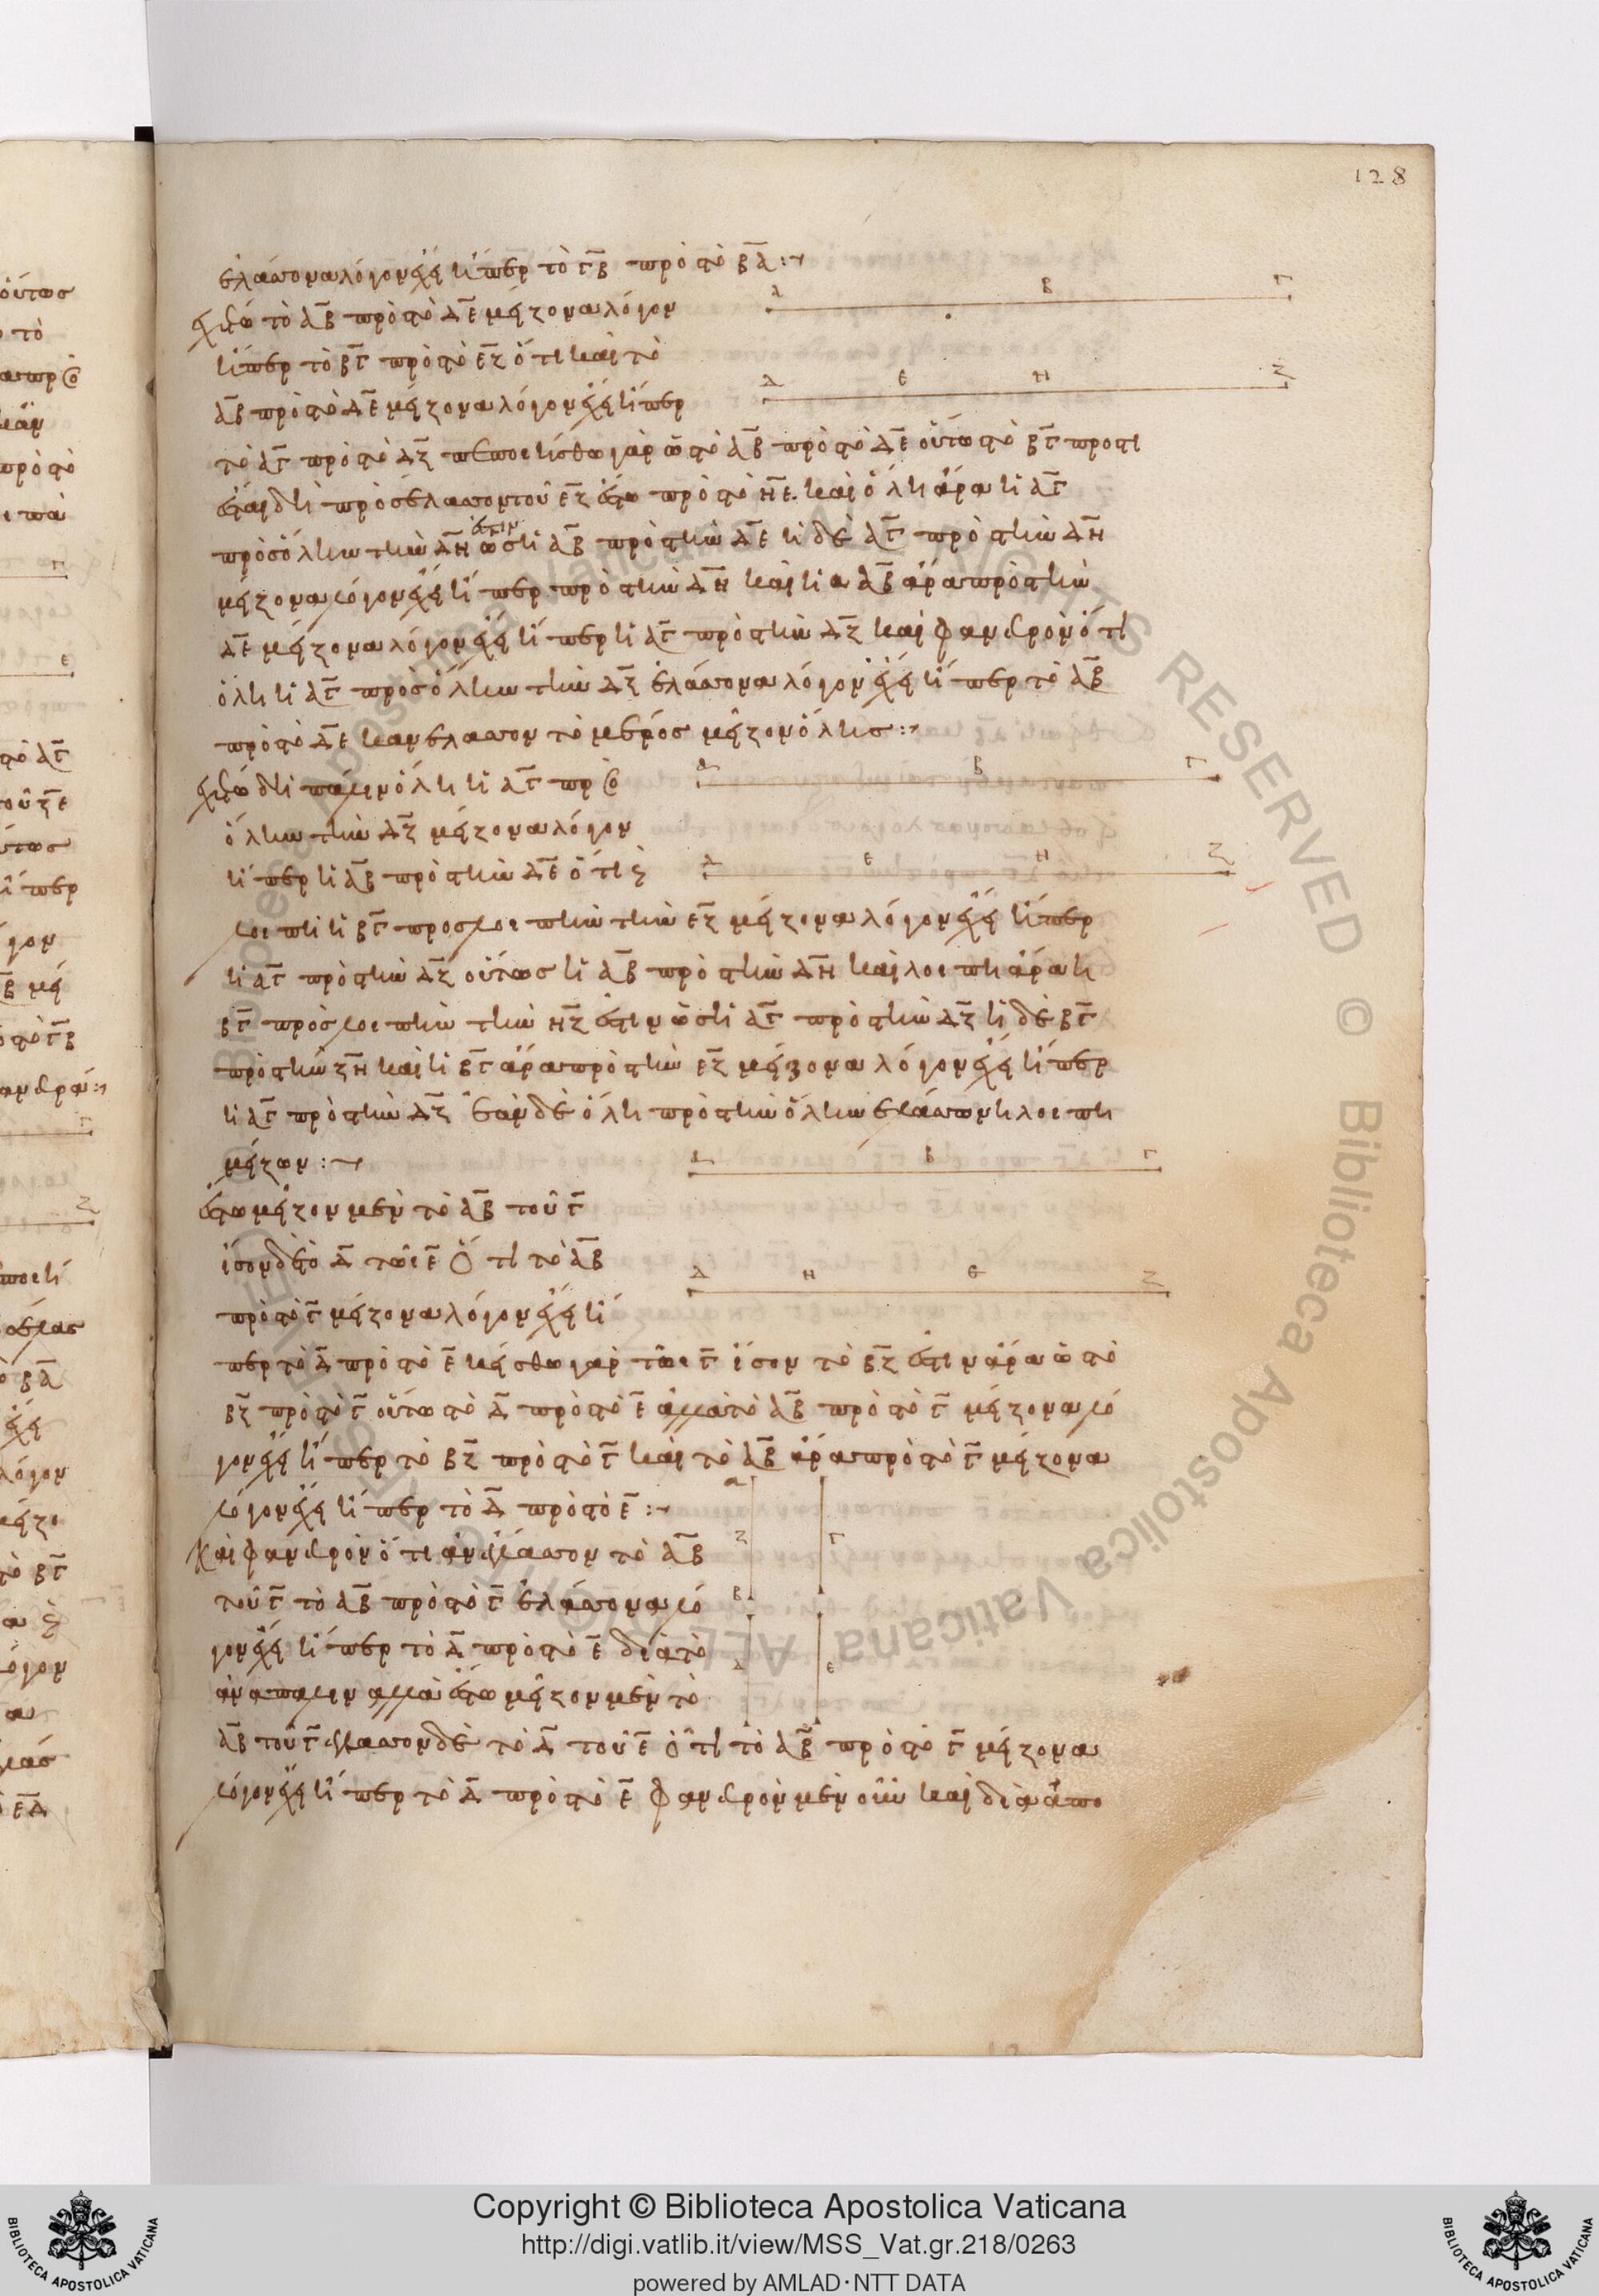 128
ἐλάσσονα λόγον ἔχει ἤπερ τὸ ΓΒ πρὸς τὸ ΒΑ :~
ἐχέτω τὸ ΑΒ πρὸς τὸ ΔΕ μείζονα λόγον
ἤπερ τὸ ΒΓ πρὸς τὸ ΕΖ ὅτι καὶ τὸ
ΑΒ πρὸς τὸ ΔΕ μείζονα λόγον ἔχει ἤπερ
τὸ ΑΓ πρὸς τὸ ΔΖ πεποιήσθω γὰρ ὡς τὸ ΑΒ πρὸς τὸ ΔΕ οὕτως τὸ ΒΓ πρός τι
ἔσται δὴ πρὸς ἔλασσον τοῦ ΕΖ ἔστω πρὸς τὸ ΗΕ. καὶ ὅλη ἄρα ἡ ΑΓ
πρὸς ὅλην τὴν ΔΗ ἐστιν ὡς ἡ ΑΒ πρὸς τὴν ΔΕ ἡ δὲ ΑΓ πρὸς τὴν ΔΗ
μείζονα λόγον ἔχει ἤπερ πρὸς τὴν ΔΗ καὶ ἡ α ΑΒ ἄρα πρὸς τὴν
ΔΕ μείζονα λόγον ἔχει ἤπερ ἡ ΑΓ πρὸς τὴν ΔΖ καὶ φανερὸν ὅτι
ὅλη ἡ ΑΓ πρὸς ὅλην τὴν ΔΖ ἐλάσσονα λόγον ἔχει ἤπερ τὸ ΑΒ
πρὸς τὸ ΔΕ κἂν ἔλασσον τὸ μέρος μεῖζον ὅλης :~
ἐχέτω δὴ πάλιν ὅλη ἡ ΑΓ πρὸς
ὅλην τὴν ΔΖ μείζονα λόγον
ἤπερ ἡ ΑΒ πρὸς τὴν ΔΕ ὅτι καὶ
λοιπὴ ἡ ΒΓ πρὸς λοιπὴν τὴν ΕΖ μείζονα λόγον ἔχει ἤπερ
ἡ ΑΓ πρὸς τὴν ΔΖ οὕτως ἡ ΑΒ πρὸς τὴν ΔΗ καὶ λοιπὴ ἄρα ἡ
ΒΓ πρὸς λοιπὴν τὴν ΗΖ ἐστιν ὡς ἡ ΑΓ πρὸς τὴν ΔΖ ἡ δὲ ΒΓ
πρὸς τὴν ΖΗ καὶ ἡ ΒΓ ἄρα πρὸς τὴν ΕΖ μείζονα λόγον ἔχει ἤπερ
ἡ ΑΓ πρὸς τὴν ΔΖ ἐὰν δὲ ὅλη πρὸς τὴν ὅλην ἐλάσσων ἡ λοιπὴ
μείζων :~
ἔστω μεῖζον μὲν τὸ ΑΒ τοῦ Γ
ἴσον δὲ τὸ Δ τῶι Ε Ὅτι τὸ ΑΒ
πρὸς τὸ Γ μείζονα λόγον ἔχει ἤ
περ τὸ Δ πρὸς τὸ Ε κείσθω γὰρ τῶι Γ ἴσον τὸ ΒΖ ἐστιν ἄρα ὡς τὸ
ΒΖ πρὸς τὸ Γ οὕτως τὸ Δ πρὸς τὸ Ε ἀλλὰ τὸ ΑΒ πρὸς τὸ Γ μείζονα λό
γον ἔχει ἤπερ τὸ ΒΖ πρὸς τὸ Γ καὶ τὸ ΑΒ ἄρα πρὸς τὸ Γ μείζονα
λόγον ἔχει ἤπερ τὸ Δ πρὸς τὸ Ε :~
Καὶ φανερὸν ὅτι ἂν ἔλασσον τὸ ΑΒ
τοῦ Γ τὸ ΑΒ πρὸς τὸ Γ ἐλάσσονα λό
γον ἔχει ἤπερ τὸ Δ πρὸς τὸ Ε διὰ τὸ
ἀνάπαλιν ἀλλὰ ἔστω μεῖζον μὲν τὸ
ΑΒ τοῦ Γ ἔλασσον δὲ τὸ Δ τοῦ Ε ὅτι τὸ ΑΒ πρὸς τὸ Γ μείζονα
λόγον ἔχει ἤπερ τὸ Δ πρὸς τὸ Ε φανερὸν μὲν οὖν καὶ δίχα ἀπο
Α Β Γ
Δ Ε Η Ζ
Α Β Γ
Δ Ε Η Ζ
Α Β Γ
Δ Η Ε Ζ
Α Ζ Β Γ Δ Ε
Copyright © Biblioteca Apostolica Vaticana
http://digi.vatlib.it/view/MSS_Vat.gr.218/0263
powered by AMLAD·NTT DATA
BIBLIOTECA APOSTOLICA VATICANA
BIBLIOTECA APOSTOLICA VATICANA